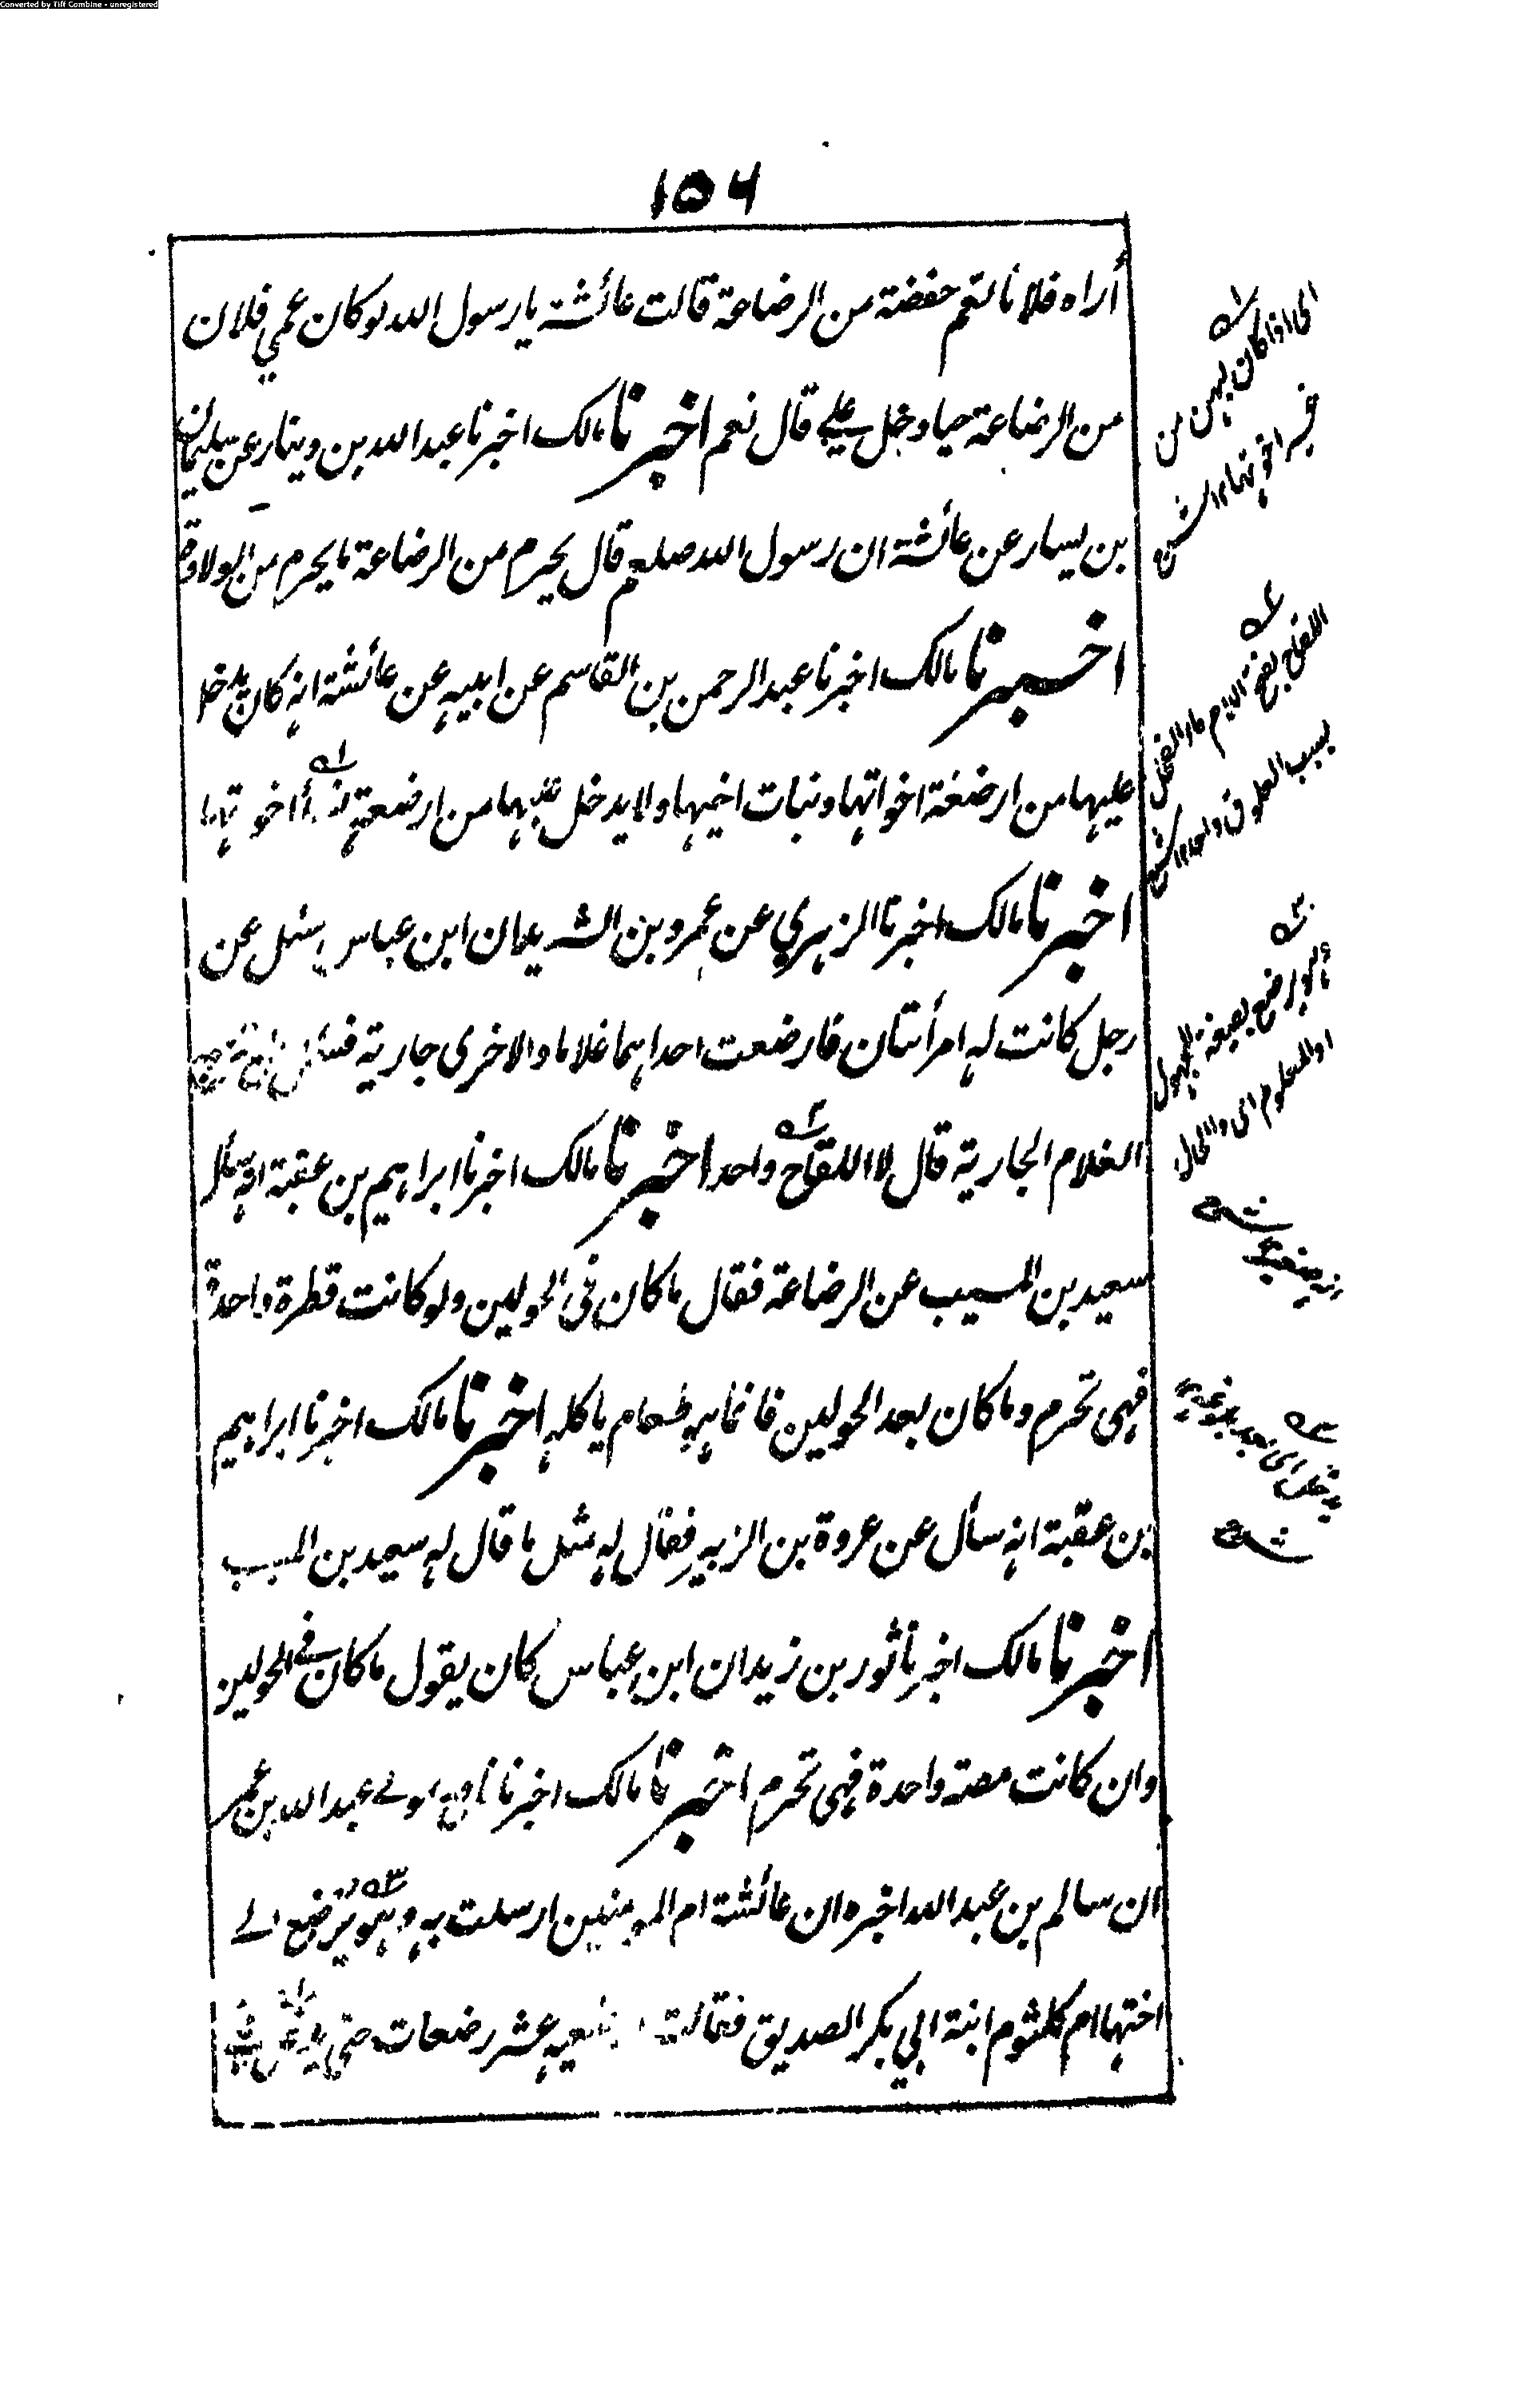 Converted by Tiff Combine - unregistered
١٥٦
أراه فلانا لعم حفصة من الرضاعة قالت عائشة يا رسول الله لو كان عمي فلان
من الرضاعة حيا دخل علي قال نعم اخبرنا مالك اخبرنا عبد الله بن دينار عن سليمان
بن يسار عن عائشة ان رسول الله صلعم قال يحرم من الرضاعة ما يحرم من الولادة
اخبرنا مالك اخبرنا عبد الرحمن بن القاسم عن ابيه عن عائشة انه كان يدخل
عليها من ارضعته اخواتها وبنات اخيها ولا يدخل عليها من ارضعته نساء اخوتها
اخبرنا مالك اخبرنا الزهري عن عمرو بن الشريد ان ابن عباس سئل عن
رجل كانت له امرأتان فارضعت احداهما غلاما والاخرى جارية فسئل
الغلام الجارية قال لا اللقاح واحد اخبرنا مالك اخبرنا ابراهيم بن عقبة انه سأل
سعيد بن المسيب عن الرضاعة فقال ما كان في الحولين ولو كانت قطرة واحدة
فهي تحرم وما كان بعد الحولين فانما هو طعام ياكله اخبرنا مالك اخبرنا ابراهيم
بن عقبة انه سأل عن عروة بن الزبير فقال له مثل ما قال له سعيد بن المسيب
اخبرنا مالك اخبرنا ثور بن زيد ان ابن عباس كان يقول ما كان في الحولين
وان كانت مصة واحدة فهي تحرم اخبرنا مالك اخبرنا نافع مولى عبد الله بن عمر
ان سالم بن عبد الله اخبره ان عائشة ام المومنين ارسلت به وهو يرضع الى
اختها ام كلثوم ابنة ابي بكر الصديق فقالت ارضعيه عشر رضعات حتى يدخل
اى اذا كان لبهن من
اللقاح بفتح اللام ماء الفحل
او المعلوم اى والحال